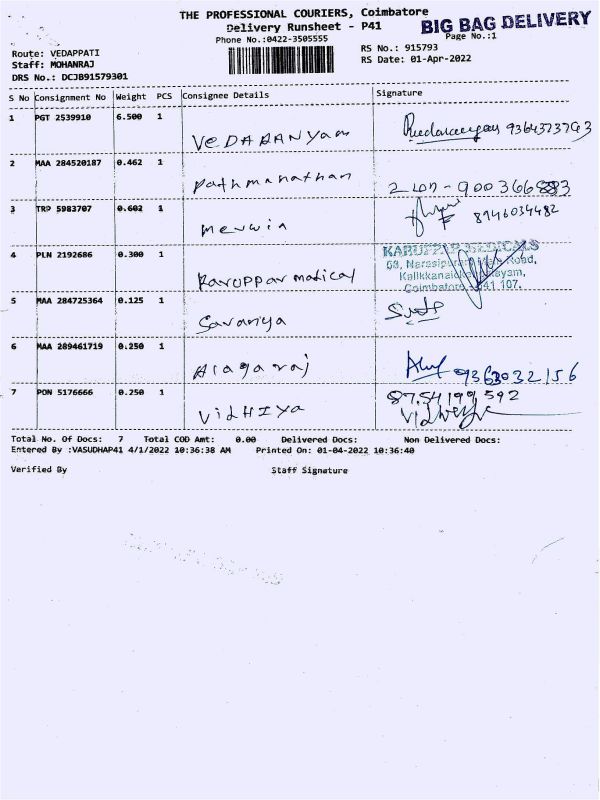 THE PROFESSIONAL COURIERS, Coimbatore
BIG BAG DELIVERY
Delivery Runsheet - P41
Phone No.:0422-3505555
Page No.:1
Route: VEDAPPATI
RS No.: 915793
Staff: MOHANRAJ
RS Date: 01-Apr-2022
DRS No.: DCJB91579301
S No Consignment No Weight PCS Consignee Details Signature
1 PGT 2539910 6.500 1 VEDARANyam
2 MAA 284520187 0.462 1 Pathmanathan
3 TRP 5983707 0.602 1 Merwin 8946034482
4 PLN 2192686 0.300 1 Karuppar medical
KARUPPAR MEDICALS
Kalikkanaickenpalayam,
Coimbatore - 641 107.
5 MAA 284725364 0.125 1 Saranya
6 MAA 289461719 0.250 1 Alagaraj 9363032156
7 PON 5176666 0.250 1 VidHiya 8754199592
Total No. Of Docs: 7 Total COD Amt: 0.00 Delivered Docs: Non Delivered Docs:
Entered By :VASUDHAP41 4/1/2022 10:36:38 AM Printed On: 01-04-2022 10:36:40
Verified By Staff Signature